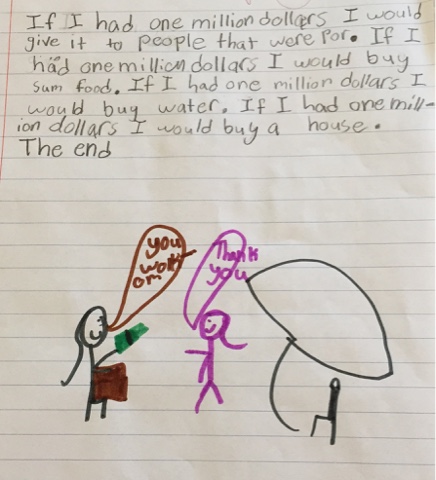 If I had one million dollars I would
give it to people that were por. If I
had one million dollars I would buy
sum food. If I had one million dollars I
would buy water. If I had one mill-
ion dollars I would buy a house.
The end
you
wolk
om
Thank
you